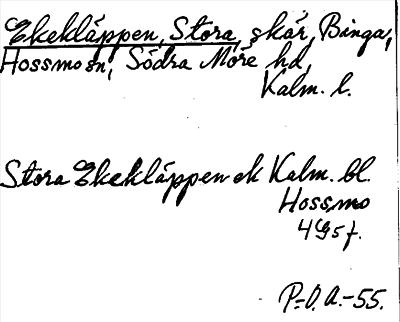 Ekekläppen, Stora, skär, Binga,
Hossmo sn, Södra Möre hd,
Kalm. l.
Stora Ekekläppen ek Kalm. bl.
Hossmo
4G5f.
P-O.A.-55.